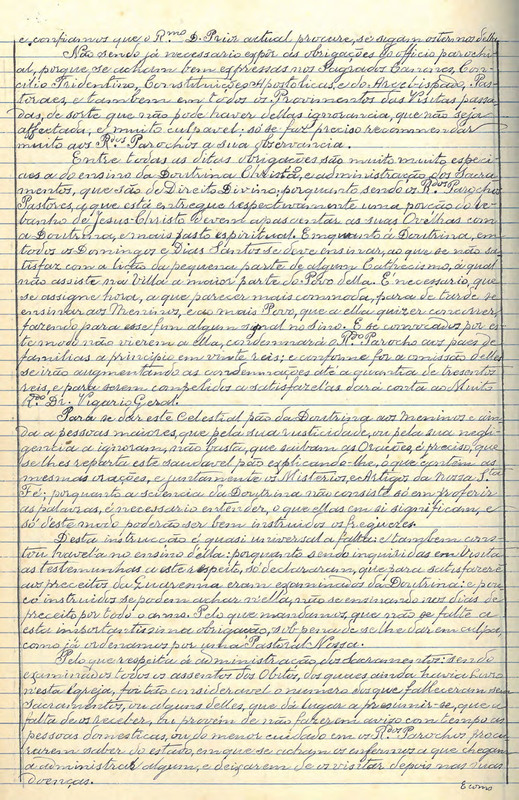 e confiamos que o R.mo D. Prior actual procure, se sigam os termos della.
Não sendo já necessario expôr as obrigações do officio parochi
al, porque se acham bem expressas nos Sagrados Canones, Con
cilio Tridentino, Constituições Apostolicas, e do Arcebispado, Pas
toraes, e tambem em todos os Provimentos das Visitas passa
das, de sorte que não póde haver dellas ignorancia, que não seja
affectada, e muito culpavel: só se faz preciso recommendar
muito aos R.dos Parochos a sua observancia.
Entre todas as ditas obrigações são muito muito especi
aes a do ensino da Doutrina Christã, e administração dos Sacra
mentos, que são de Direito Divino; porquanto sendo os R.dos Parochos
Pastores, a que está entregue respectivamente uma porção do re
banho de Jesus-Christo devem apascentar as suas Ovelhas com
a Doutrina, e mais pasto espiritual. Emquanto á Doutrina, em
todos os Domingos e Dias Santos se deve ensinar, ao que se não sa
tisfaz com a lição da pequena parte de algum Cathecismo, á qual
não assiste na Villa a maior parte do Povo della. É necessario, que
se assigne hora, a que parecer mais commoda, para de tarde se
ensinar aos Meninos, e ao mais Povo, que a ella quizer concorrer,
fazendo para esse fim algum signal no sino. E se convocados por es
te modo não vierem a ella, condemnará o R.do Parocho aos paes de
familias a principio em vinte reis; e conforme for a omissão delles
se irão augmentando as condemnações até a quantia de tresentos
reis, e para serem compellidos a satisfazel-as dará conta ao Muito
R.do Dr. Vigario Geral.
Para se dar este Celestial pão da Doutrina aos meninos e ain
da a pessoas maiores, que pela sua rusticidade, ou pela sua negli
gencia a ignoram, não basta, que saibam as Orações, é preciso, que
se lhes reparta este saudavel pão explicando-lhe, o que contêm as
mesmas orações, e juntamente os Misterios, e Artigos da Nossa S.ta
Fé; porquanto a sciencia da Doutrina não consiste só em proferir
as palavras, é necessario entender, o que ellas em si significam, e
só deste modo poderão ser bem instruidos os freguezes.
Desta instrucção é quasi universal a falta: e tambem cons
tou havel-a no ensino della: porquanto sendo inquiridas em Visita
as testemunhas a este respeito, só declararam, que para satisfazer
aos preceitos da Quaresma eram examinados da Doutrina: e pou
co instruidos se podem achar n'ella, não se ensinando nos dias de
preceito por todo o anno. Pelo que mandamos, que não se falte a
esta importantissima obrigação, sob pena de se lhe dar em culpa,
como já ordenamos por uma Pastoral Nossa.
Pelo que respeita á administração dos Sacramentos: sendo
examinados todos os assentos dos Obitos, dos quaes ainda havia livro
n'esta Egreja, foi tão consideravel o numero dos que falleceram sem
Sacramentos, ou alguns delles, que dá lugar a presumir-se, que a
falta de os receber, ou provém de não fazerem avizo com tempo as
pessoas domesticas, ou do menor cuidado em os R.dos Parochos, procu
rarem saber do estado, em que se acham os enfermos a que chegam
a administrar algum, e deixarem de os visitar depois nas suas
doenças.
E como